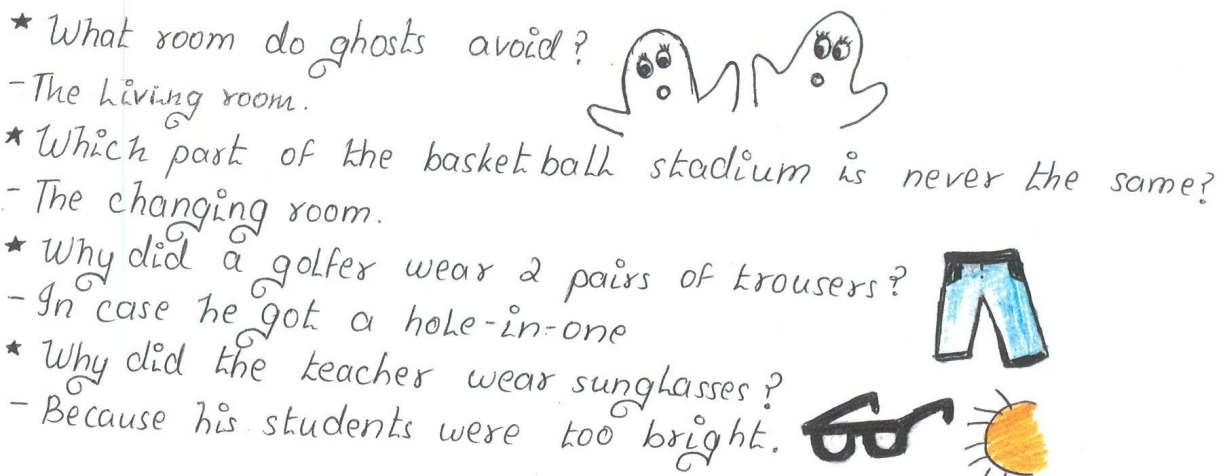 * What room do ghosts avoid?
- The living room.
* Which part of the basketball stadium is never the same?
- The changing room.
* Why did a golfer wear 2 pairs of trousers?
- In case he got a hole-in-one
* Why did the teacher wear sunglasses?
- Because his students were too bright.